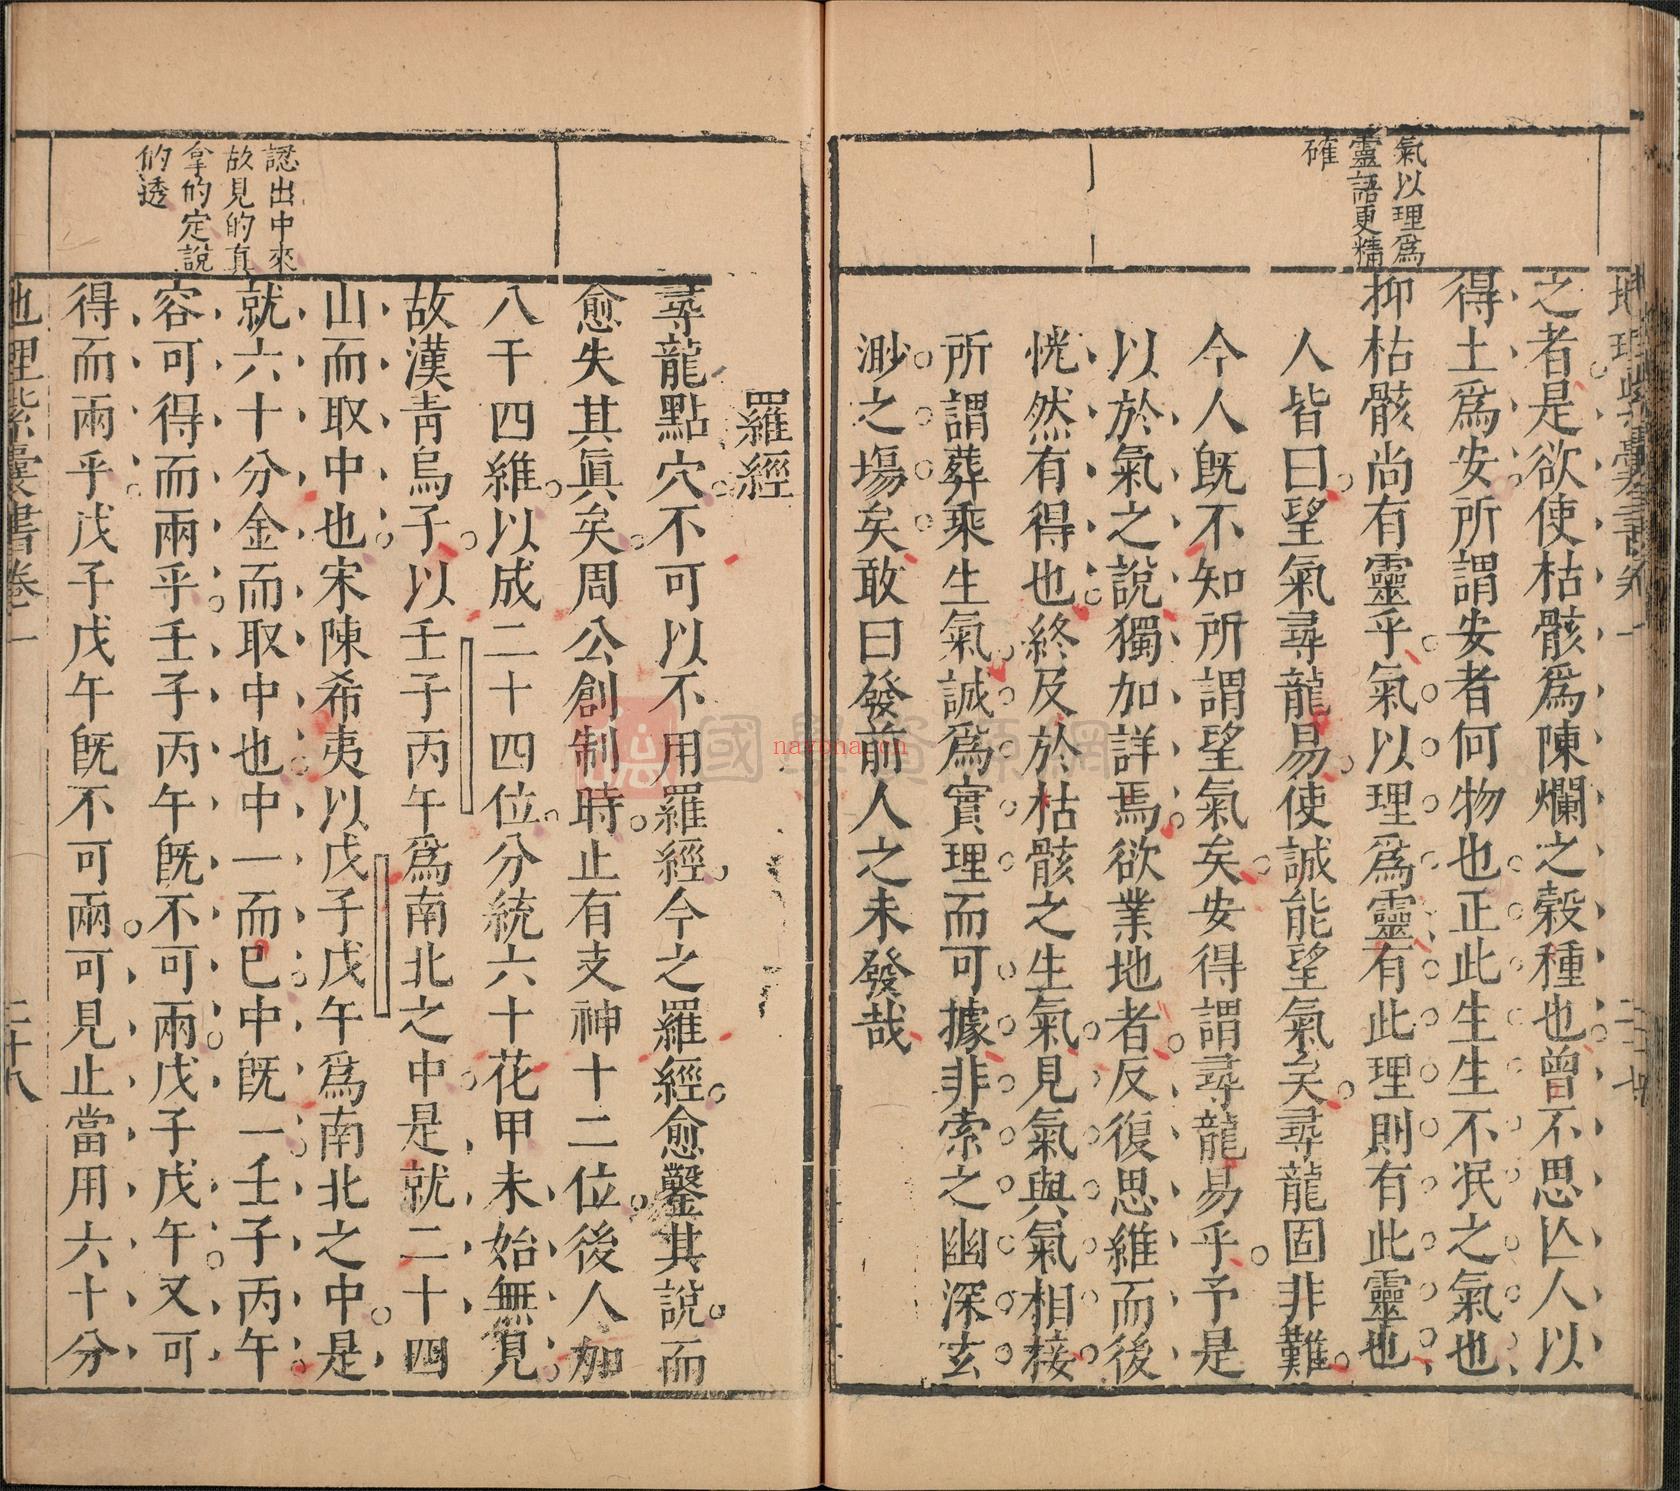 地理紫囊書卷一
氣以理爲
靈語更精
確
之者是欲使枯骸爲陳爛之穀種也曾不思亾人以
得土爲安所謂安者何物也正此生生不泯之氣也
抑枯骸尚有靈乎氣以理爲靈有此理則有此靈也
人皆曰望氣尋龍易使誠能望氣矣尋龍固非難
今人旣不知所謂望氣矣安得謂尋龍易乎予是
以於氣之說獨加詳焉欲業地者反復思維而後
恍然有得也終及於枯骸之生氣見氣與氣相接
所謂葬乘生氣誠爲實理而可據非索之幽深玄
渺之場矣敢曰發前人之未發哉
羅經
尋龍點穴不可以不用羅經今之羅經愈鑿其說而
愈失其眞矣周公創制時止有支神十二位後人加
八干四維以成二十四位分統六十花甲未始無見
故漢靑烏子以壬子丙午爲南北之中是就二十四
山而取中也宋陳希夷以戊子戊午爲南北之中是
就六十分金而取中也中一而已中旣一壬子丙午
容可得而兩乎壬子丙午旣不可兩戊子戊午又可
得而兩乎戊子戊午旣不可兩可見止當用六十分
認出中來
故見的真
拿的定說
的透
地理紫囊書卷一
二十八
國學資源網
nayona.cn